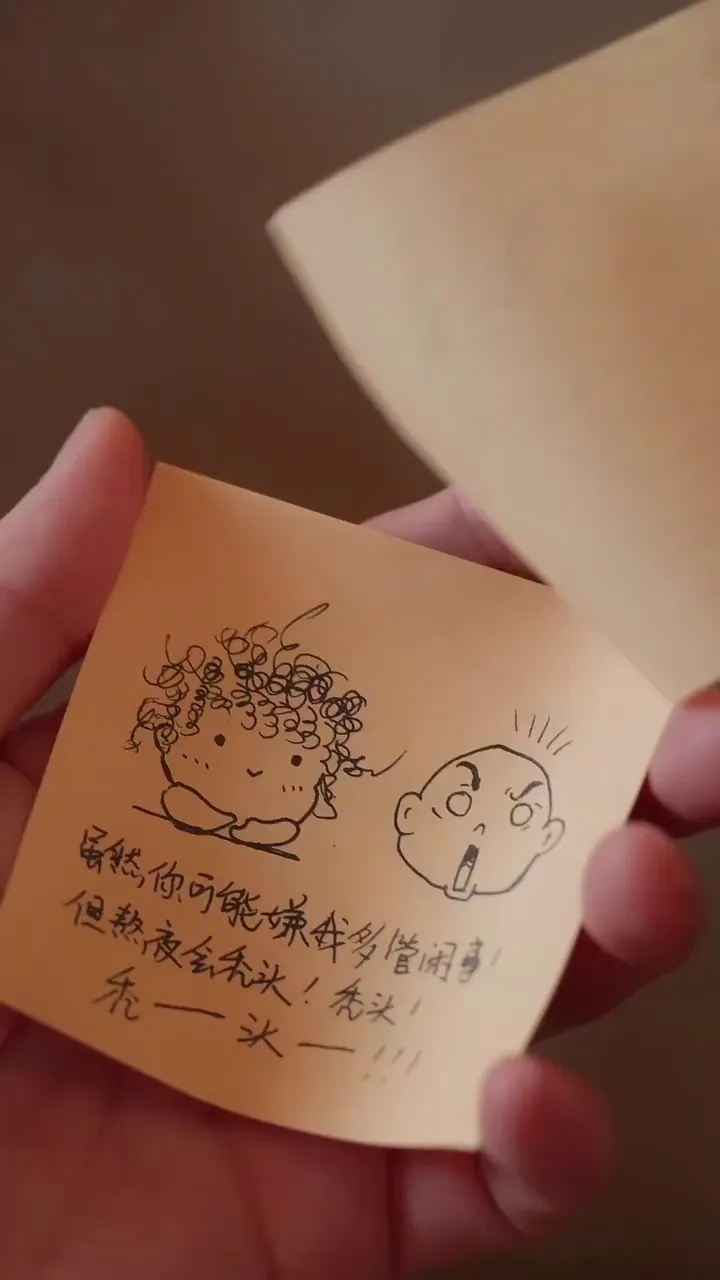 虽然你可能嫌我多管闲事!
但熬夜会秃头!秃头!
秃——头—!!!